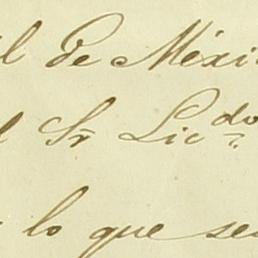 l de Méxi
l Sr Licdo.
lo que se